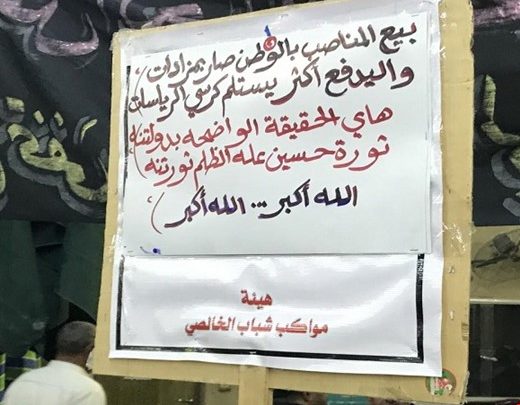 بيع المناصب بالوطن صار بمزادات
واليدفع أكثر يستلم كرسي الرياسات
هاي الحقيقة الواضحه بدولتنه
ثورة حسين عله الظلم ثورتنه
الله أكبر... الله أكبر
هيئة
مواكب شباب الخالصي